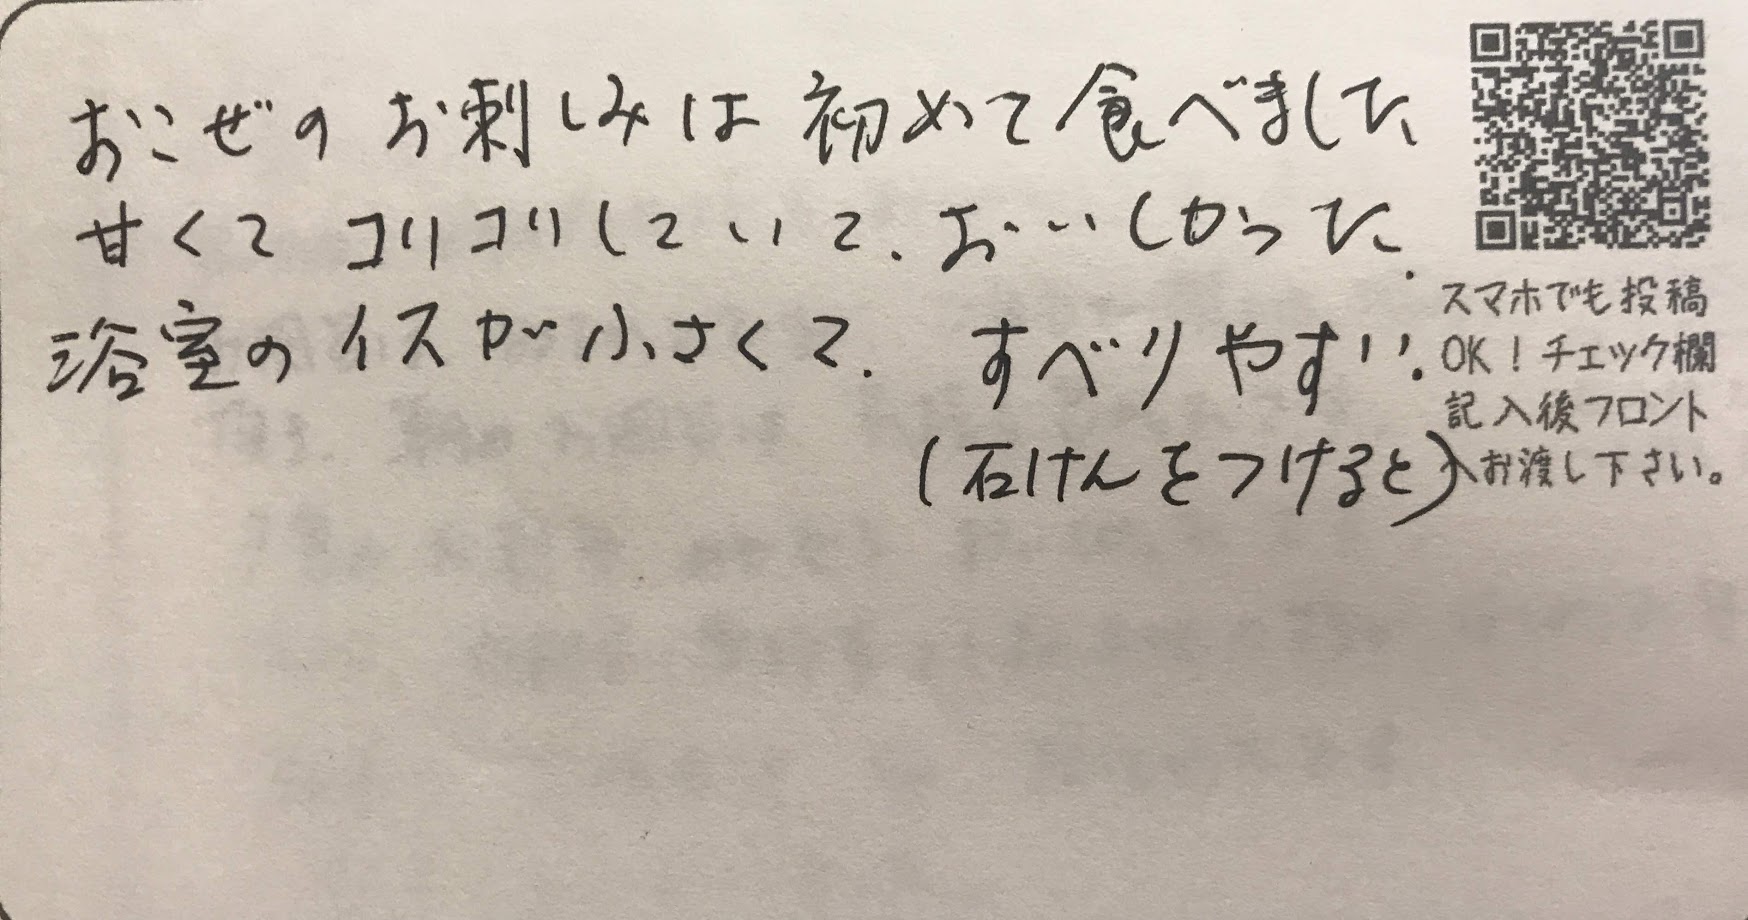 おこぜの お刺しみは 初めて食べました
甘くて コリコリしていて、おいしかった.
浴室の イスが小さくて、 すべりやすい.
(石けんをつけると)
スマホでも投稿
OK！チェック欄
記入後フロント
へお渡し下さい。